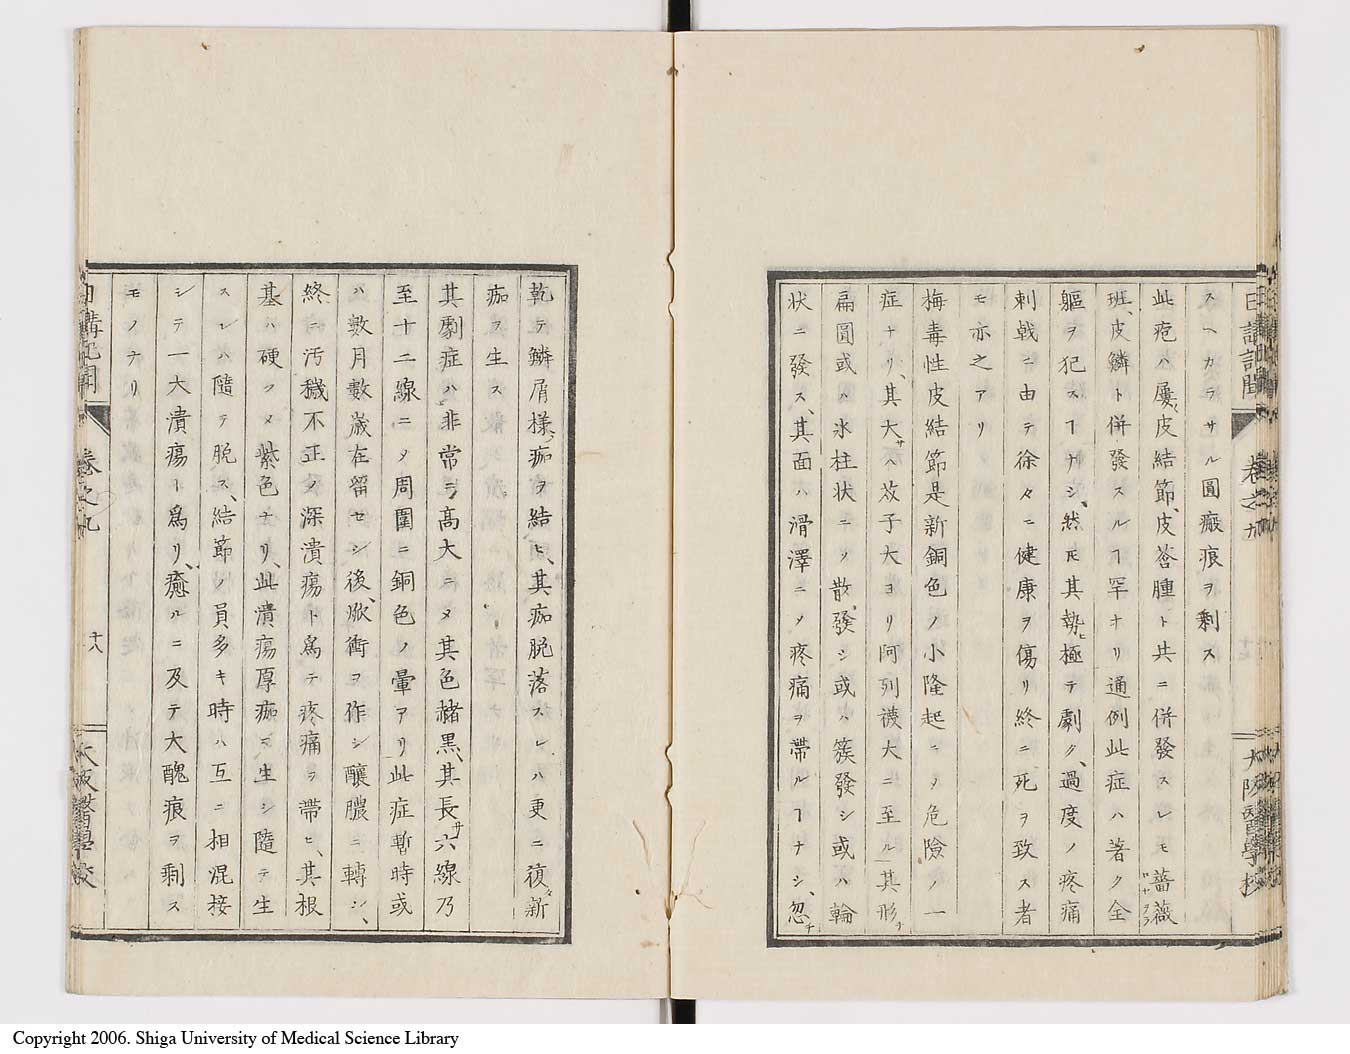 日講記聞 卷之九 大阪醫學校
スヘカラサル圓瘢痕ヲ剩ス
此疱ハ屢〻皮結節、皮荅腫ト共ニ併發スレモ薔薇
班、皮鱗ト併發スルヿ罕ナリ通例此症ハ著ク全
軀ヲ犯スヿナシ、然𪜈其勢ヒ極テ劇ク、過度ノ疼痛
刺戟ニ由テ徐々ニ健康ヲ傷リ終ニ死ヲ致ス者
モ亦之アリ
梅毒性皮結節是新銅色ノ小隆起ニノ危險ノ一
症ナリ、其大サハ莈子大ヨリ阿列襪大ニ至ル其形チ
扁圓或ハ氷柱状ニノ散發シ或ハ簇發シ或ハ輪
状ニ發ス、其面ハ滑澤ニノ疼痛ヲ帶ルヿナシ、忽チ
乾テ鱗屑様ノ痂ヲ結ヒ、其痂脱落スレハ更ニ復タ新
痂ヲ生ス
其劇症ハ非常ニ高大ニノ其色赭黒、其長サ六線乃
至十二線ニノ周圍ニ銅色ノ暈アリ此症暫時或
ハ數月數嵗在留セシ後焮衝ヲ作シ釀膿ニ轉シ、
終ニ汚穢不正ノ深潰瘍ト爲テ疼痛ヲ帶ヒ、其根
基ハ硬クノ紫色ナリ、此潰瘍厚痂ヲ生シ隨テ生
スレハ隨テ脱ス、結節ノ員多キ時ハ互ニ相混接
シテ一大潰瘍ト爲リ、癒ルニ及テ大醜痕ヲ剩ス
モノナリ
日講記聞 卷之九 十八 大阪醫學校
Copyright 2006. Shiga University of Medical Science Library